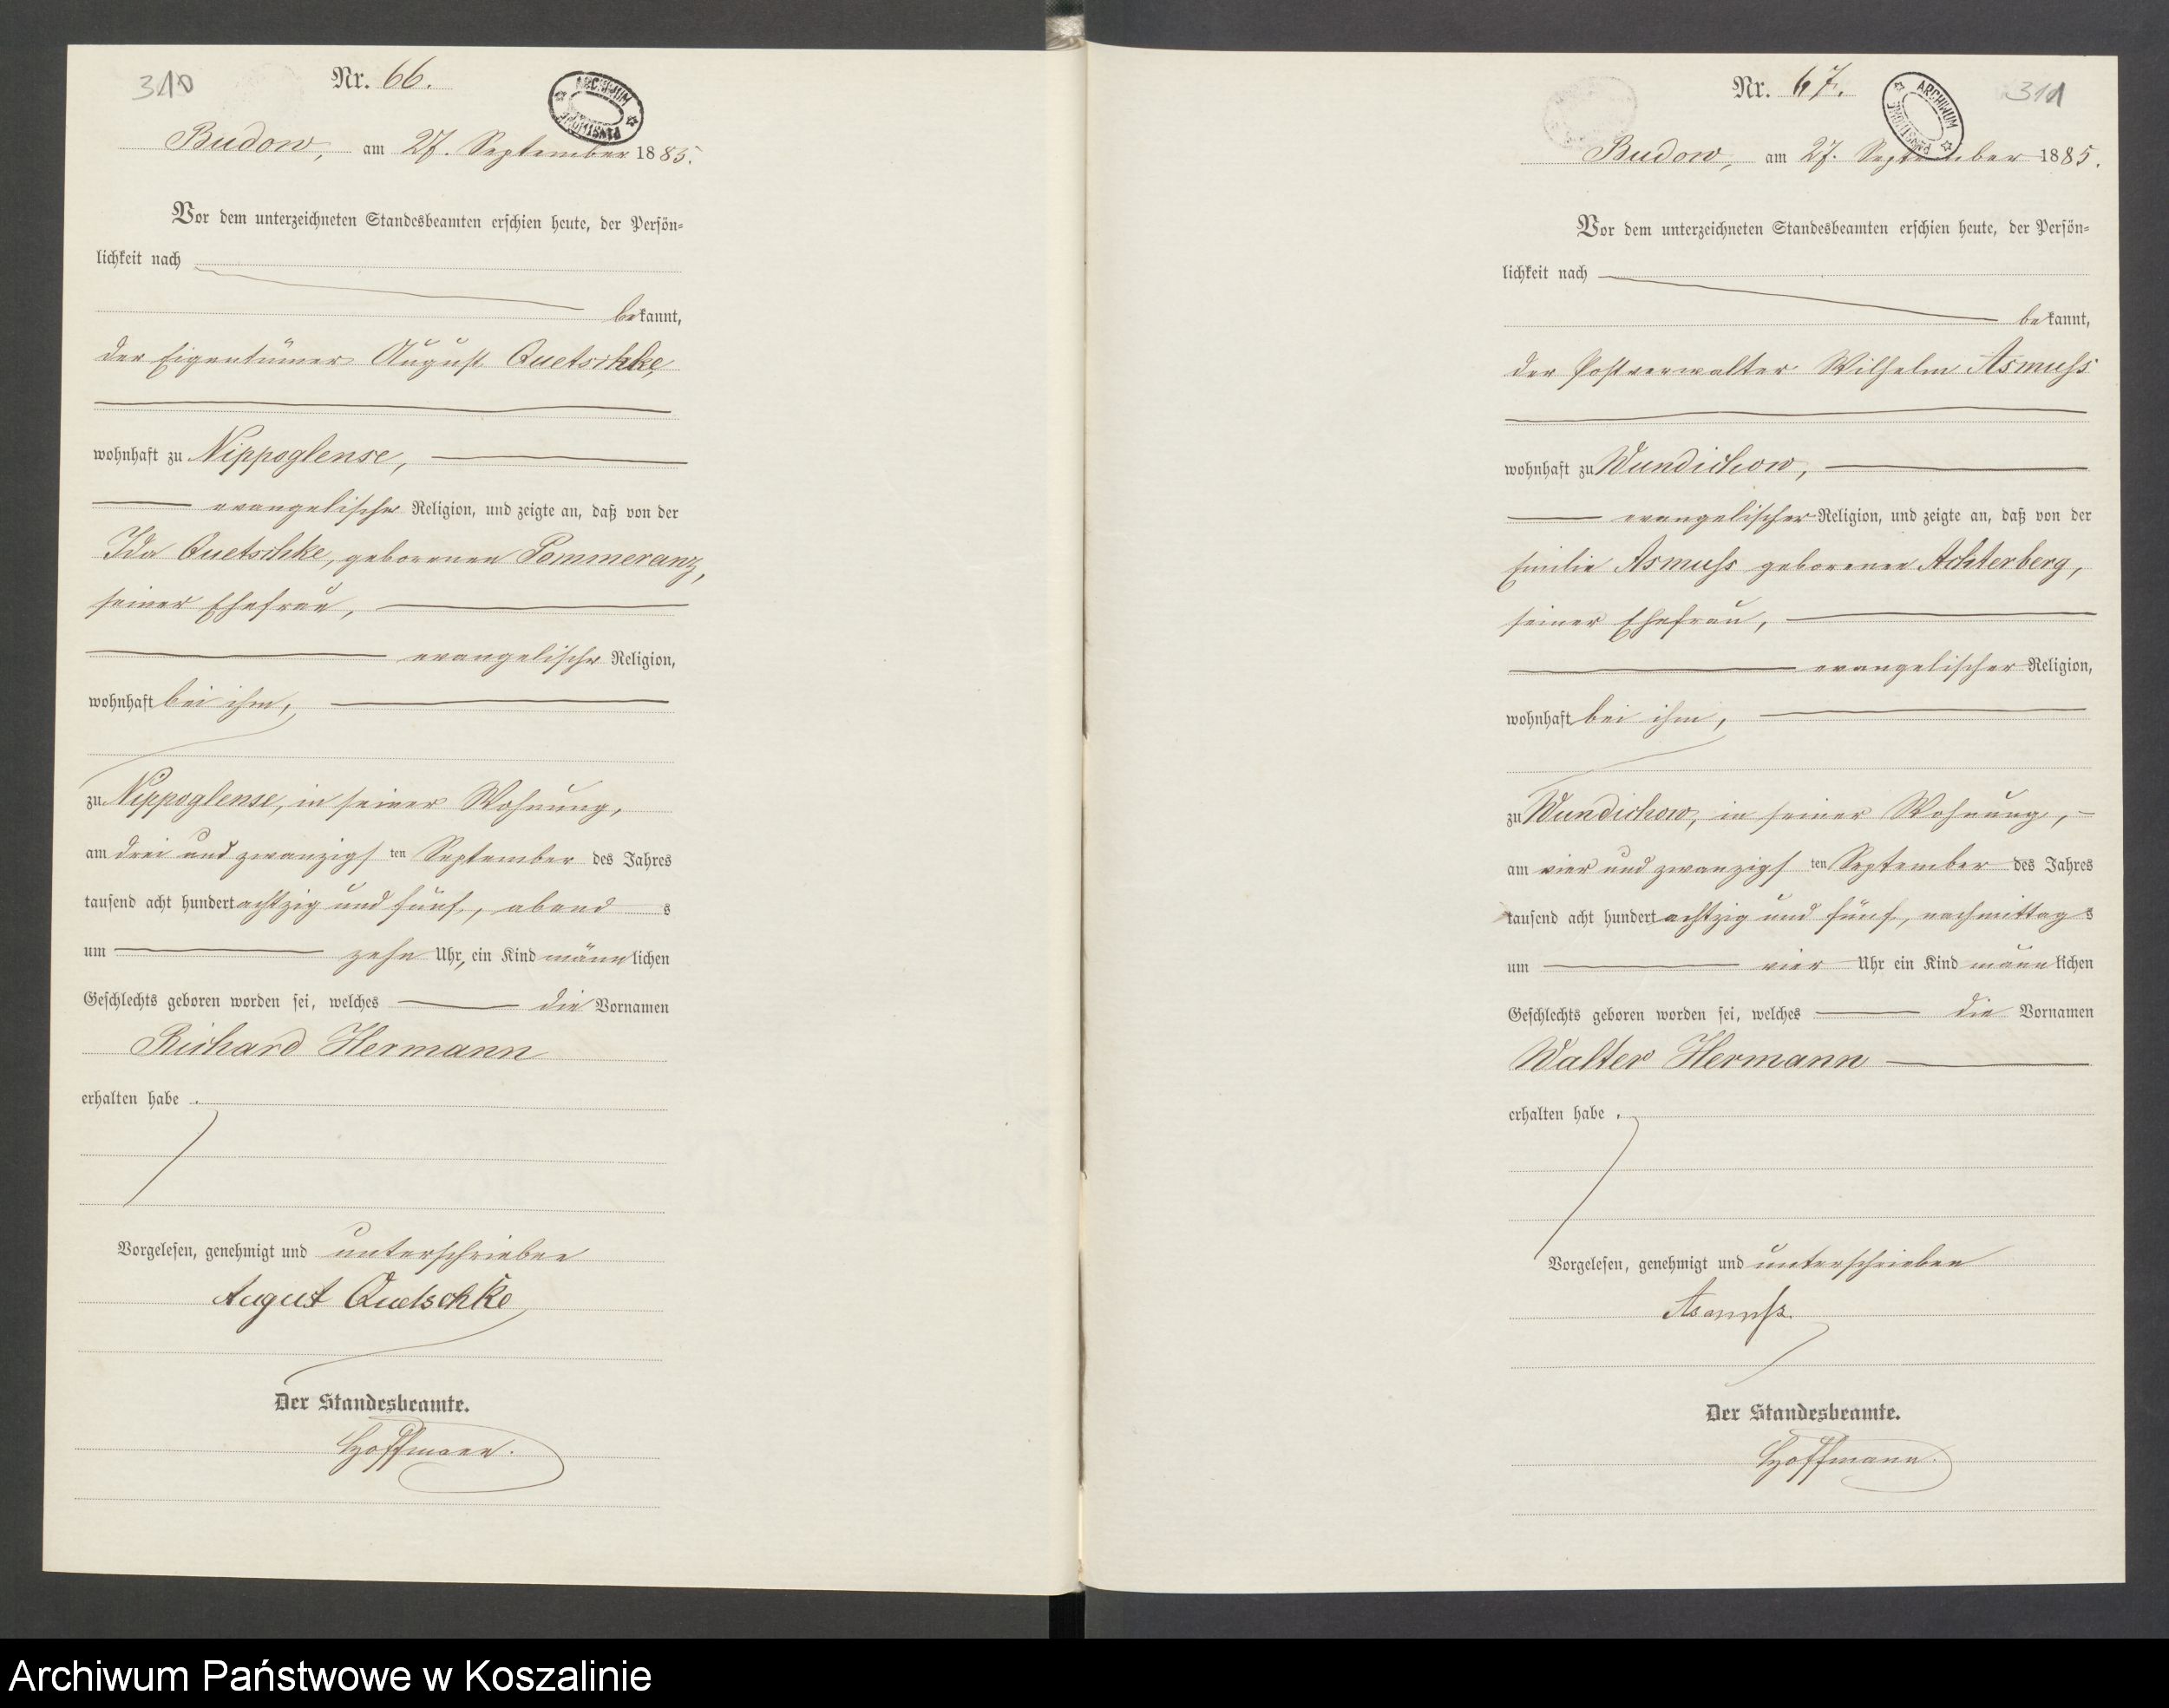 310
Nr. 66.
ARCHIWUM PAŃSTWOWE
Budow, am 27. September 1885.
Vor dem unterzeichneten Standesbeamten erschien heute, der Persön-
lichkeit nach
bekannt,
der Eigentümer August Quetschke,
wohnhaft zu Nippoglense,
evangelischer Religion, und zeigte an, daß von der
Ida Quetschke, geborenen Pommeranz,
seiner Ehefrau,
evangelischer Religion,
wohnhaft bei ihm,
zu Nippoglense, in seiner Wohnung,
am drei und zwanzigsten September des Jahres
tausend acht hundert achtzig und fünf, abends
um zehn Uhr, ein Kind männlichen
Geschlechts geboren worden sei, welches die Vornamen
Richard Hermann
erhalten habe.
Vorgelesen, genehmigt und unterschrieben
August Quetschke
Der Standesbeamte.
Hoffmann.
311
Nr. 67.
ARCHIWUM PAŃSTWOWE
Budow, am 27. September 1885.
Vor dem unterzeichneten Standesbeamten erschien heute, der Persön-
lichkeit nach
bekannt,
der Postverwalter Wilhelm Asmuss
wohnhaft zu Wundichow,
evangelischer Religion, und zeigte an, daß von der
Emilie Asmuss geborenen Achterberg,
seiner Ehefrau,
evangelischer Religion,
wohnhaft bei ihm,
zu Wundichow, in seiner Wohnung,
am vier und zwanzigsten September des Jahres
tausend acht hundert achtzig und fünf, nachmittags
um vier Uhr ein Kind männlichen
Geschlechts geboren worden sei, welches die Vornamen
Walter Hermann
erhalten habe.
Vorgelesen, genehmigt und unterschrieben
Asmuss.
Der Standesbeamte.
Hoffmann.
Archiwum Państwowe w Koszalinie